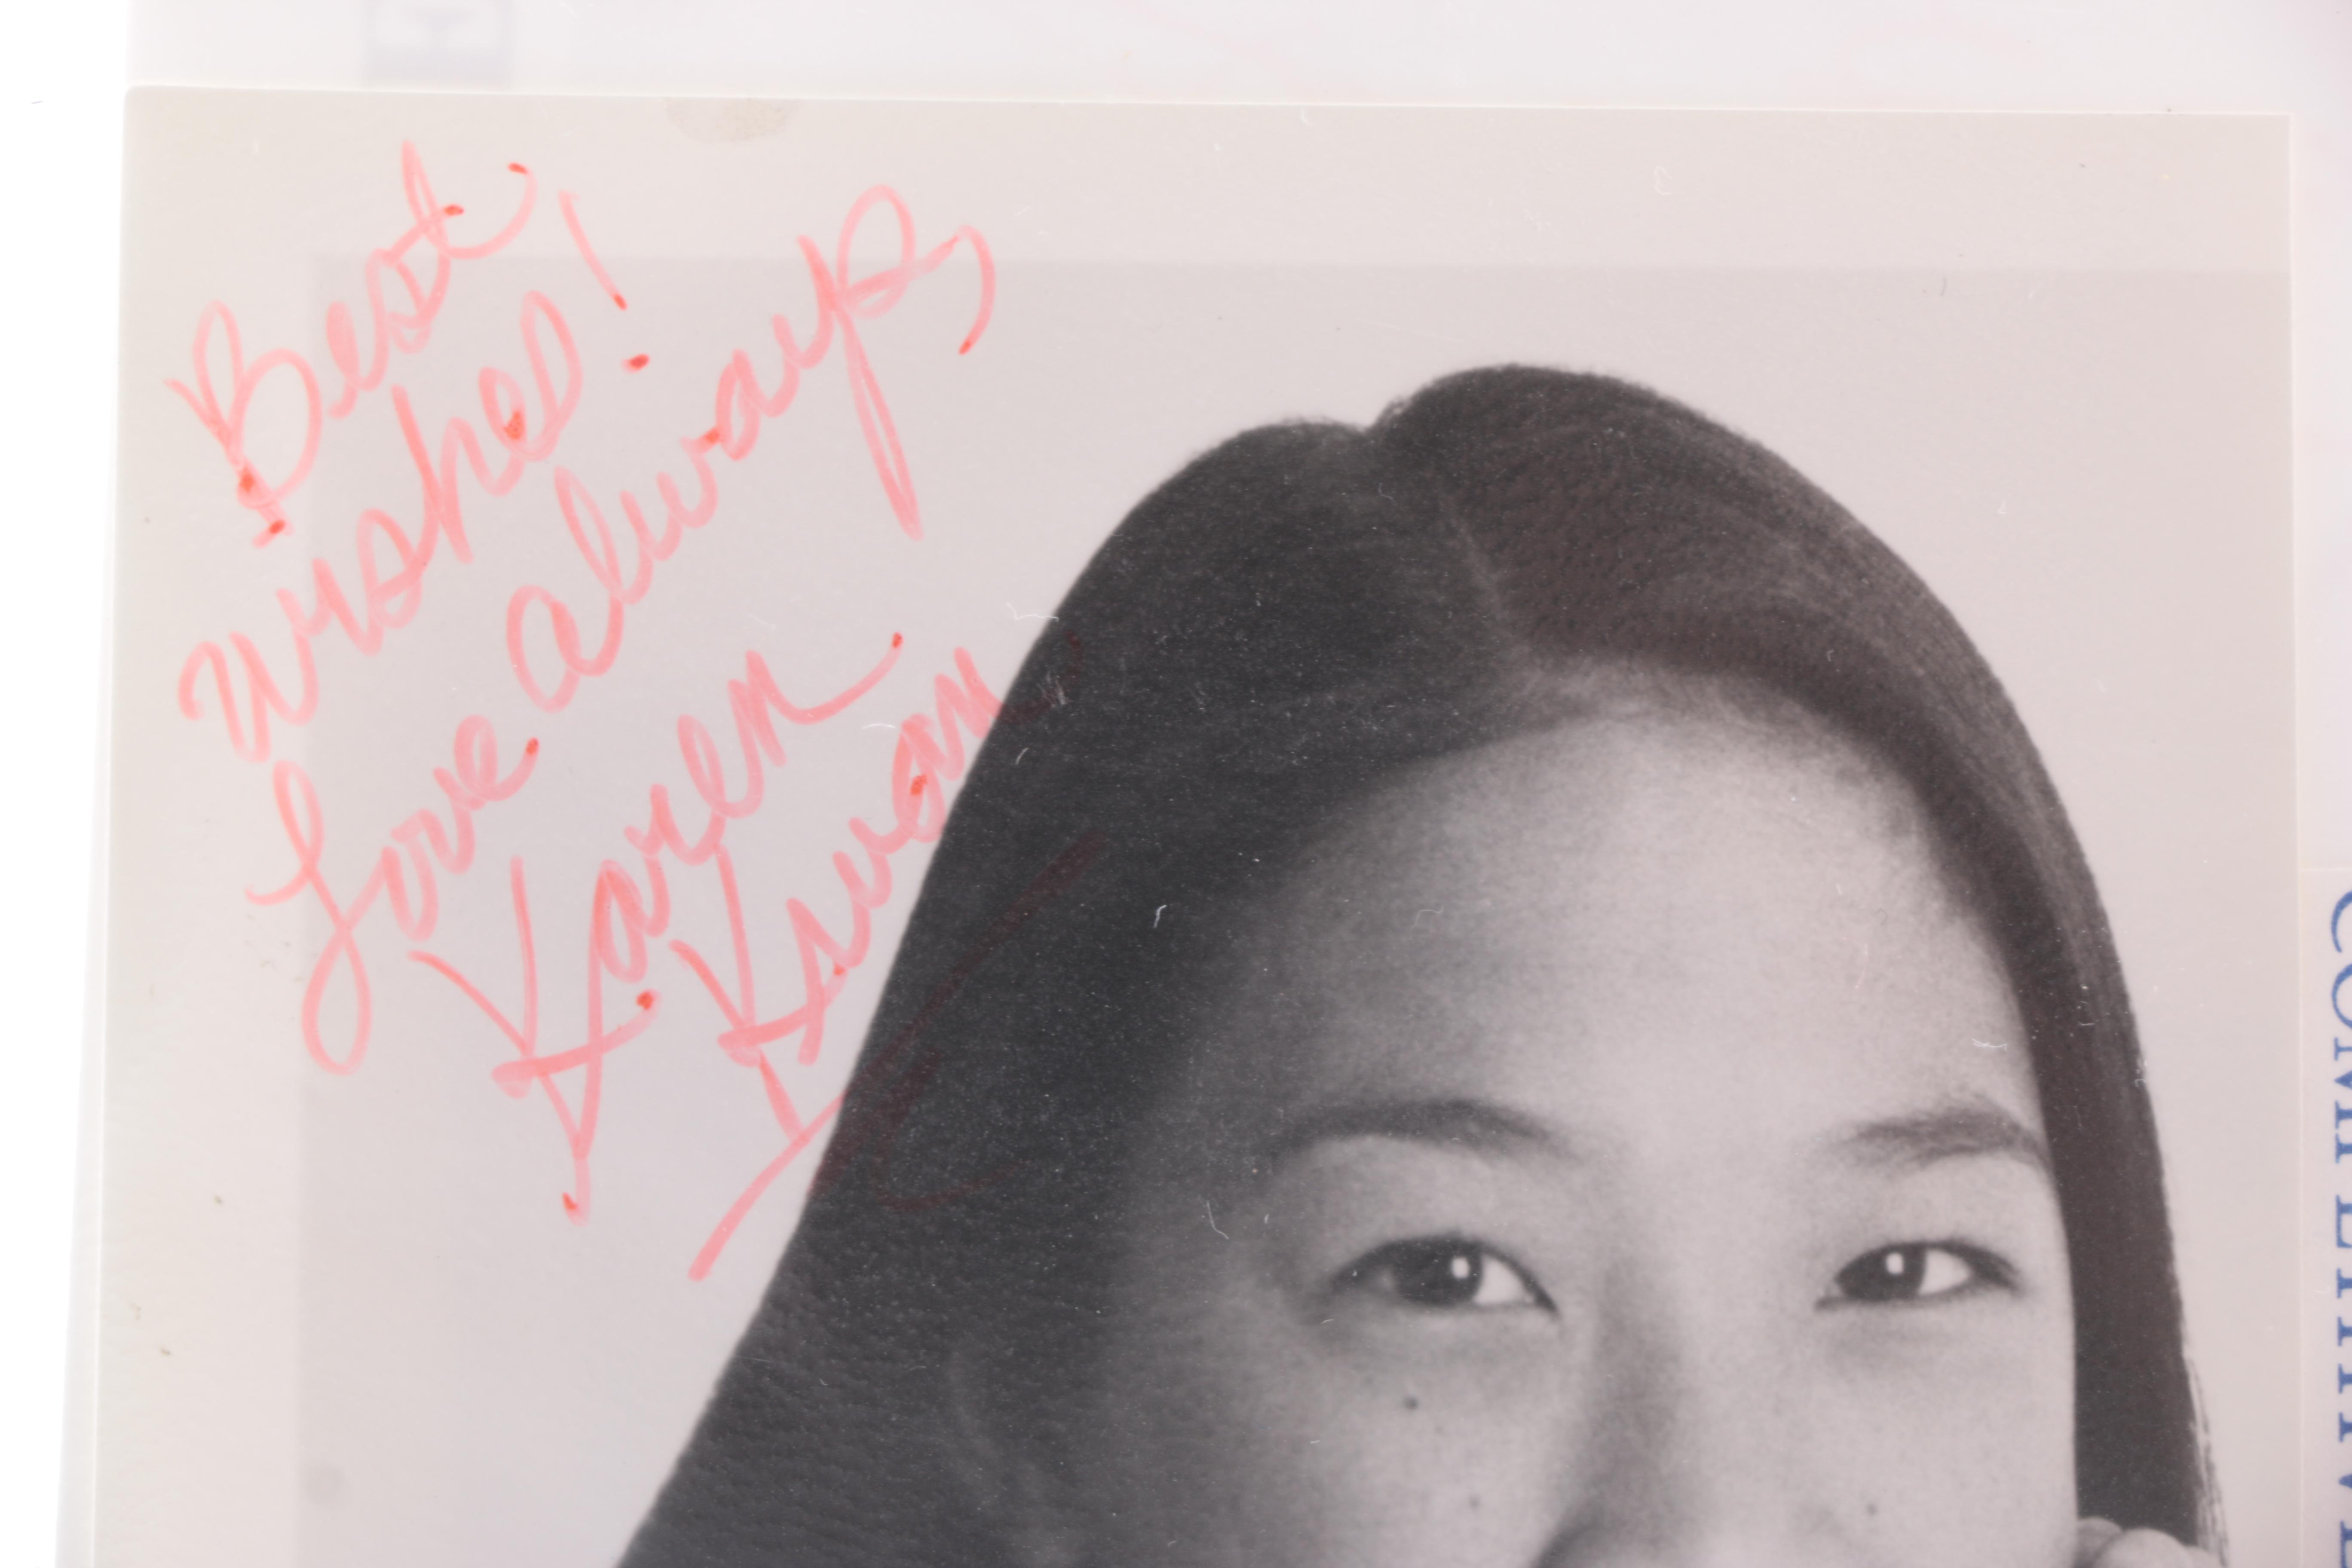 Best
wishes!
Love always,
Karen
Kwan